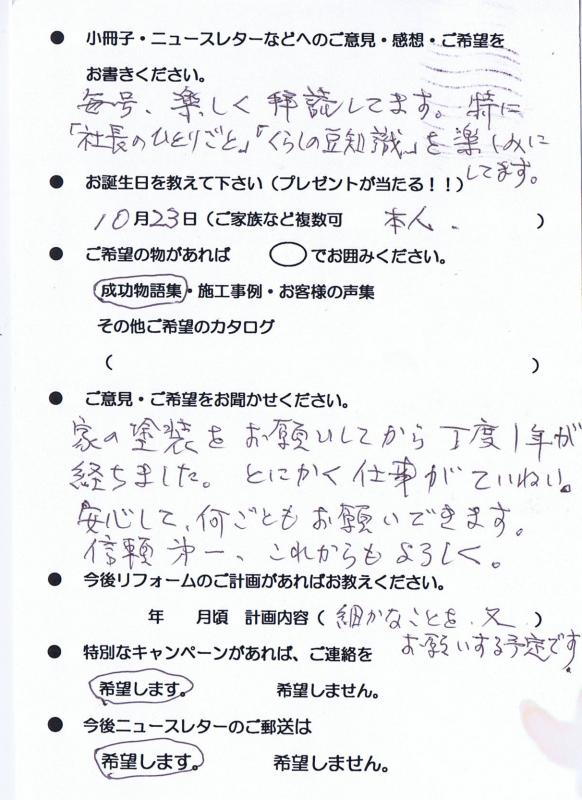 ● 小冊子・ニュースレターなどへのご意見・感想・ご希望を
お書きください。
毎号、楽しく拝読してます。特に
「社長のひとりごと」「くらしの豆知識」を楽しみに
してます。
● お誕生日を教えて下さい（プレゼントが当たる！！）
10月23日（ご家族など複数可 本人. ）
● ご希望の物があれば ◯でお囲みください。
成功物語集・施工事例・お客様の声集
その他ご希望のカタログ
（ ）
● ご意見・ご希望をお聞かせください。
家の塗装をお願いしてから丁度1年が
経ちました。とにかく仕事がていねい。
安心して、何ごともお願いできます。
信頼第一、これからもよろしく。
● 今後リフォームのご計画があればお教えください。
年 月頃 計画内容（細かなことを、又）
お願いする予定です。
● 特別なキャンペーンがあれば、ご連絡を
希望します。 希望しません。
● 今後ニュースレターのご郵送は
希望します。 希望しません。